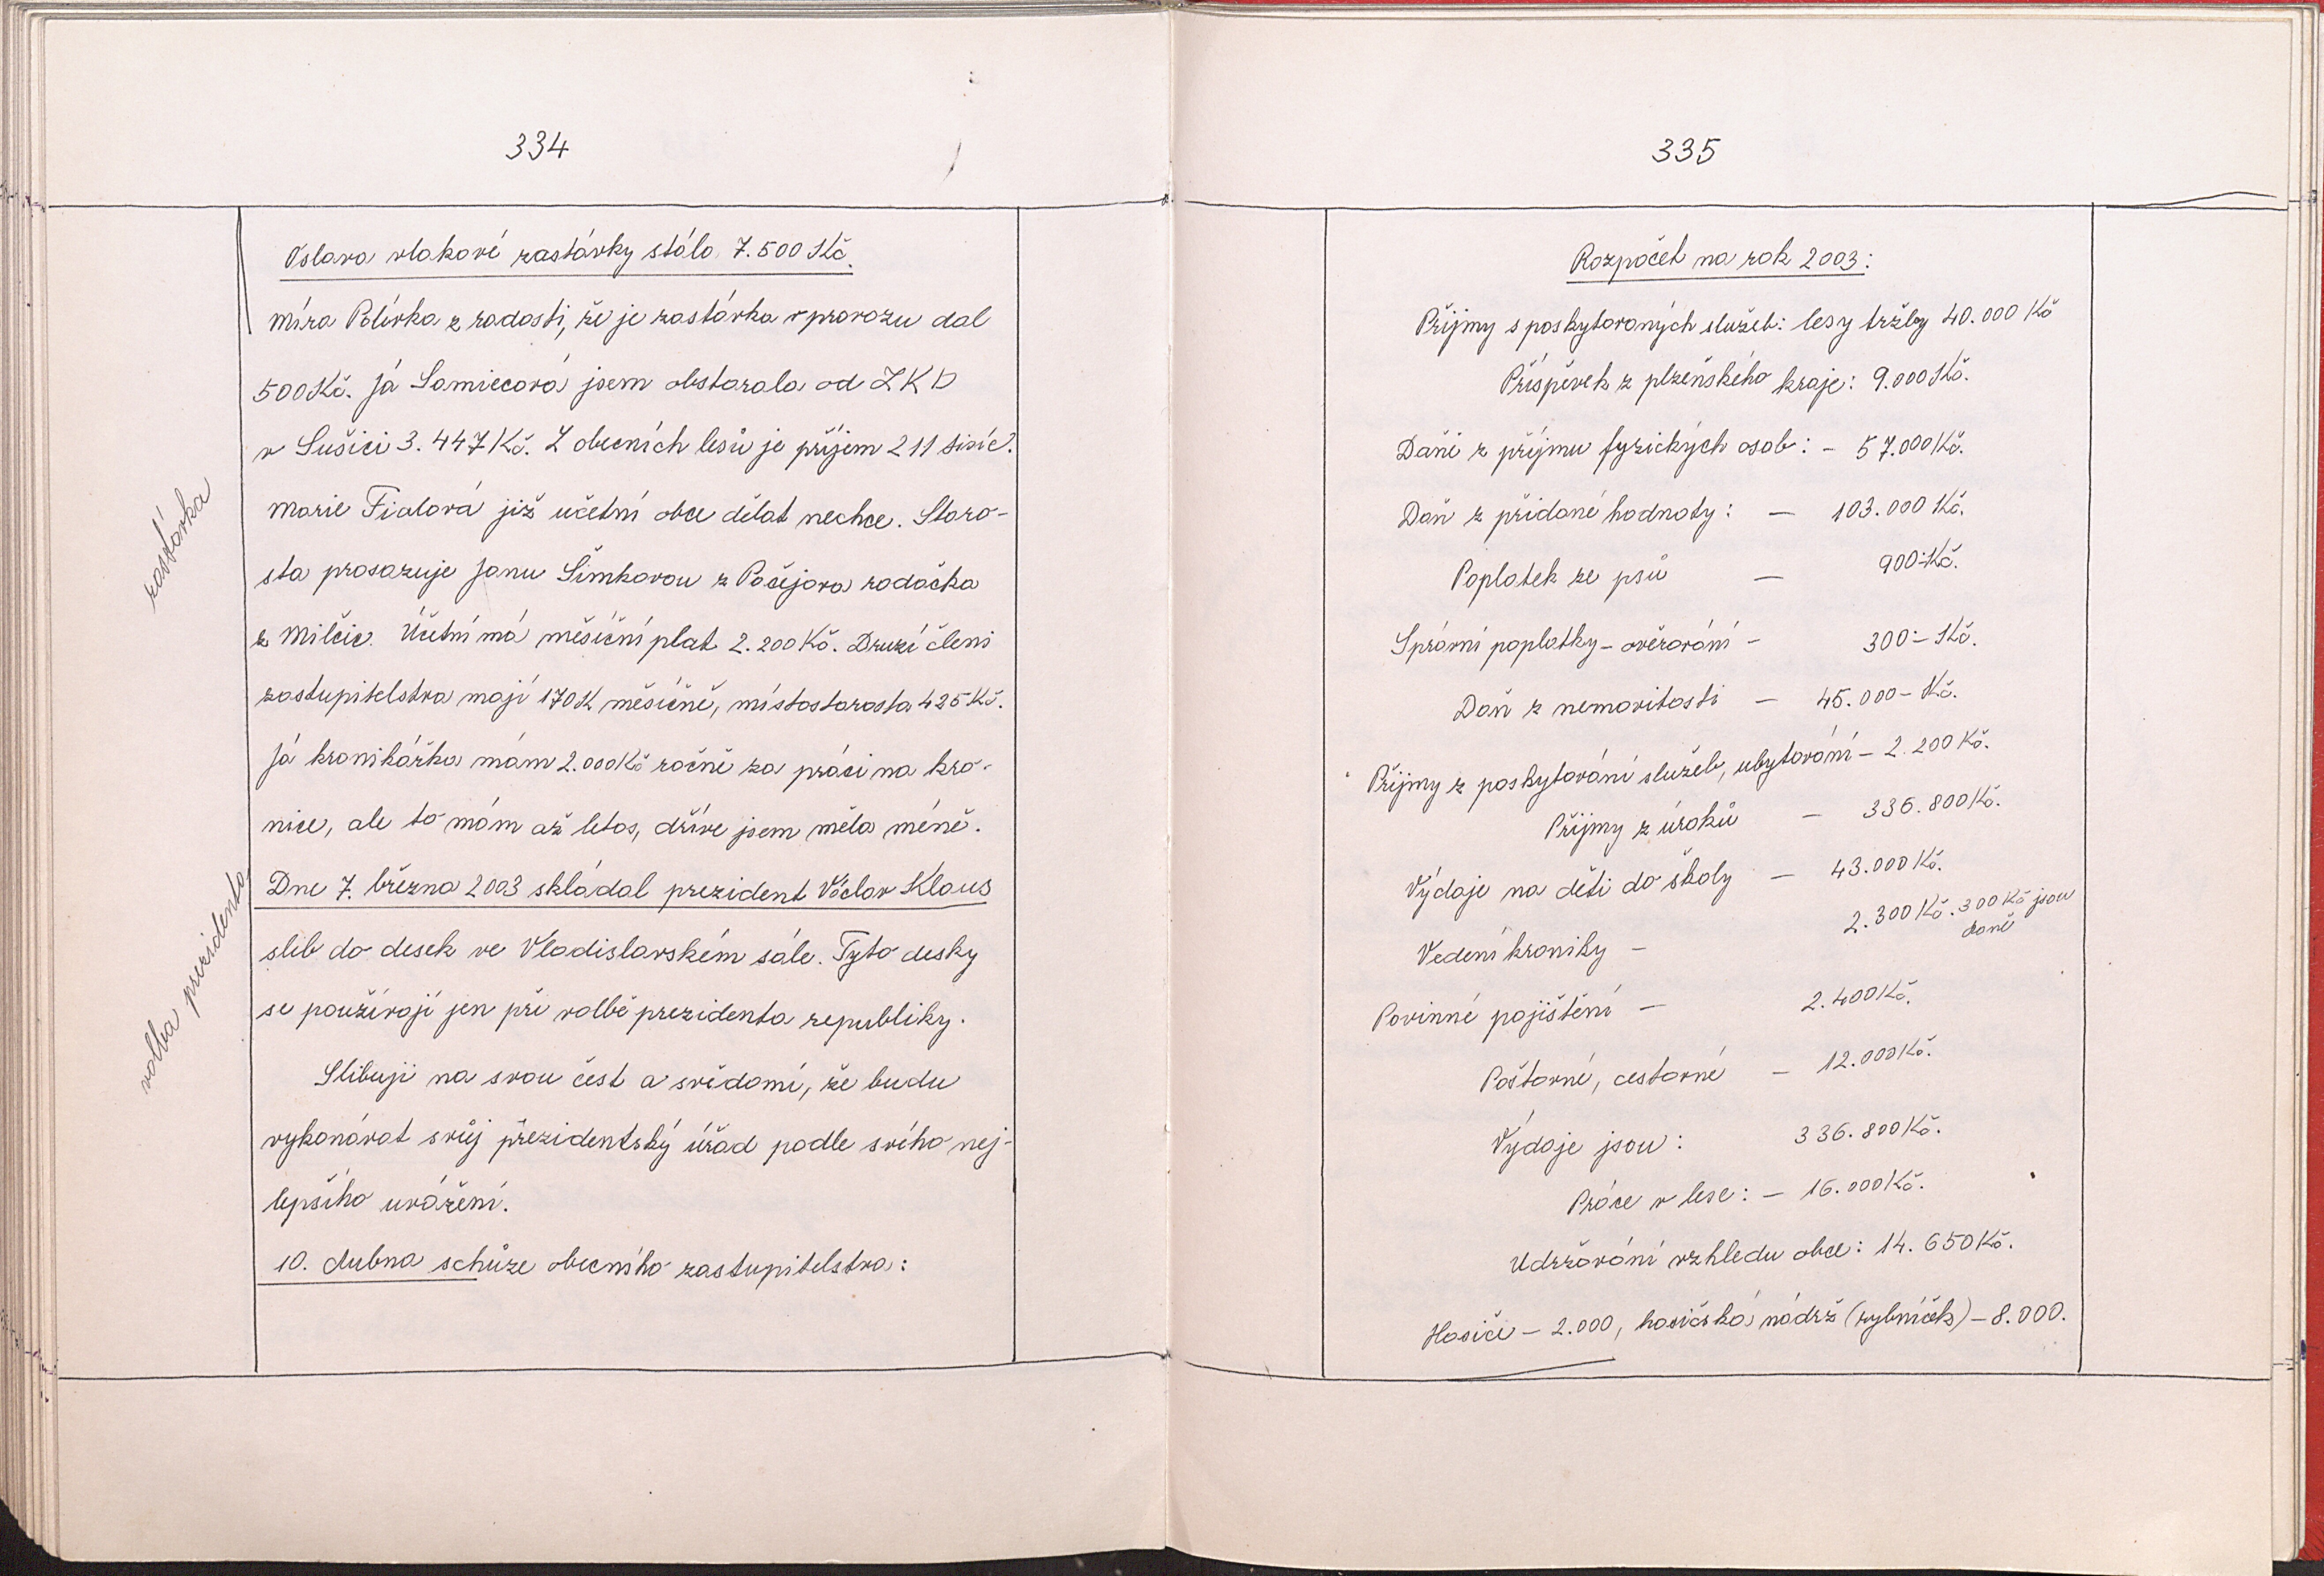 334
Oslava vlakové zastávky stála 7.500 Kč.
Míra Polívka z radosti, že je zastávka v provozu dal
500 Kč. Já Samiecová jsem obstarala od ZKD
v Sušici 3.447 Kč. Z obecních lesů je příjem 211 tisíc.
zastávka
Marie Fialová již účetní obce dělat nechce. Staro-
sta prosazuje Janu Šimkovou z Počejova rodačka
z Milčic. Účetní má měsíční plat 2.200 Kč. Druzí členi
zastupitelstva mají 170 K měsíčně, místostarosta 425 Kč.
Já kronikářka mám 2.000 Kč ročně za práci na kro-
nice, ale to mám až letos, dříve jsem měla méně.
volba prezidenta
Dne 7. března 2003 skládal prezident Václav Klaus
slib do desek ve Vladislavském sále. Tyto desky
se používají jen při volbě prezidenta republiky.
Slibuji na svou čest a svědomí, že budu
vykonávat svůj prezidentský úřad podle svého nej-
lepšího uvážení.
10. dubna schůze obecního zastupitelstva:
335
Rozpočet na rok 2003:
Příjmy s poskytovaných služeb: lesy tržby 40.000 Kč
Příspěvek z plzeňského kraje: 9.000 Kč.
Daně z příjmu fyzických osob: - 57.000 Kč.
Daň z přidané hodnoty: — 103.000 Kč.
Poplatek ze psů — 900.- Kč.
Správní poplatky - ověřování - 300.- Kč.
Daň z nemovitosti — 45.000 - Kč.
Příjmy z poskytování služeb, ubytování - 2.200 Kč.
Příjmy z úroků — 336.800 Kč.
Výdaje na děti do školy — 43.000 Kč.
Vedení kroniky — 2.300 Kč. 300 Kč jsou
daně
Povinné pojištění — 2.400 Kč.
Poštovné, cestovné — 12.000 Kč.
Výdaje jsou: 336.800 Kč.
Práce v lese: — 16.000 Kč.
Udržování vzhledu obce: 14.650 Kč.
Hasiči - 2.000, hasičská nádrž (rybníček) - 8.000.